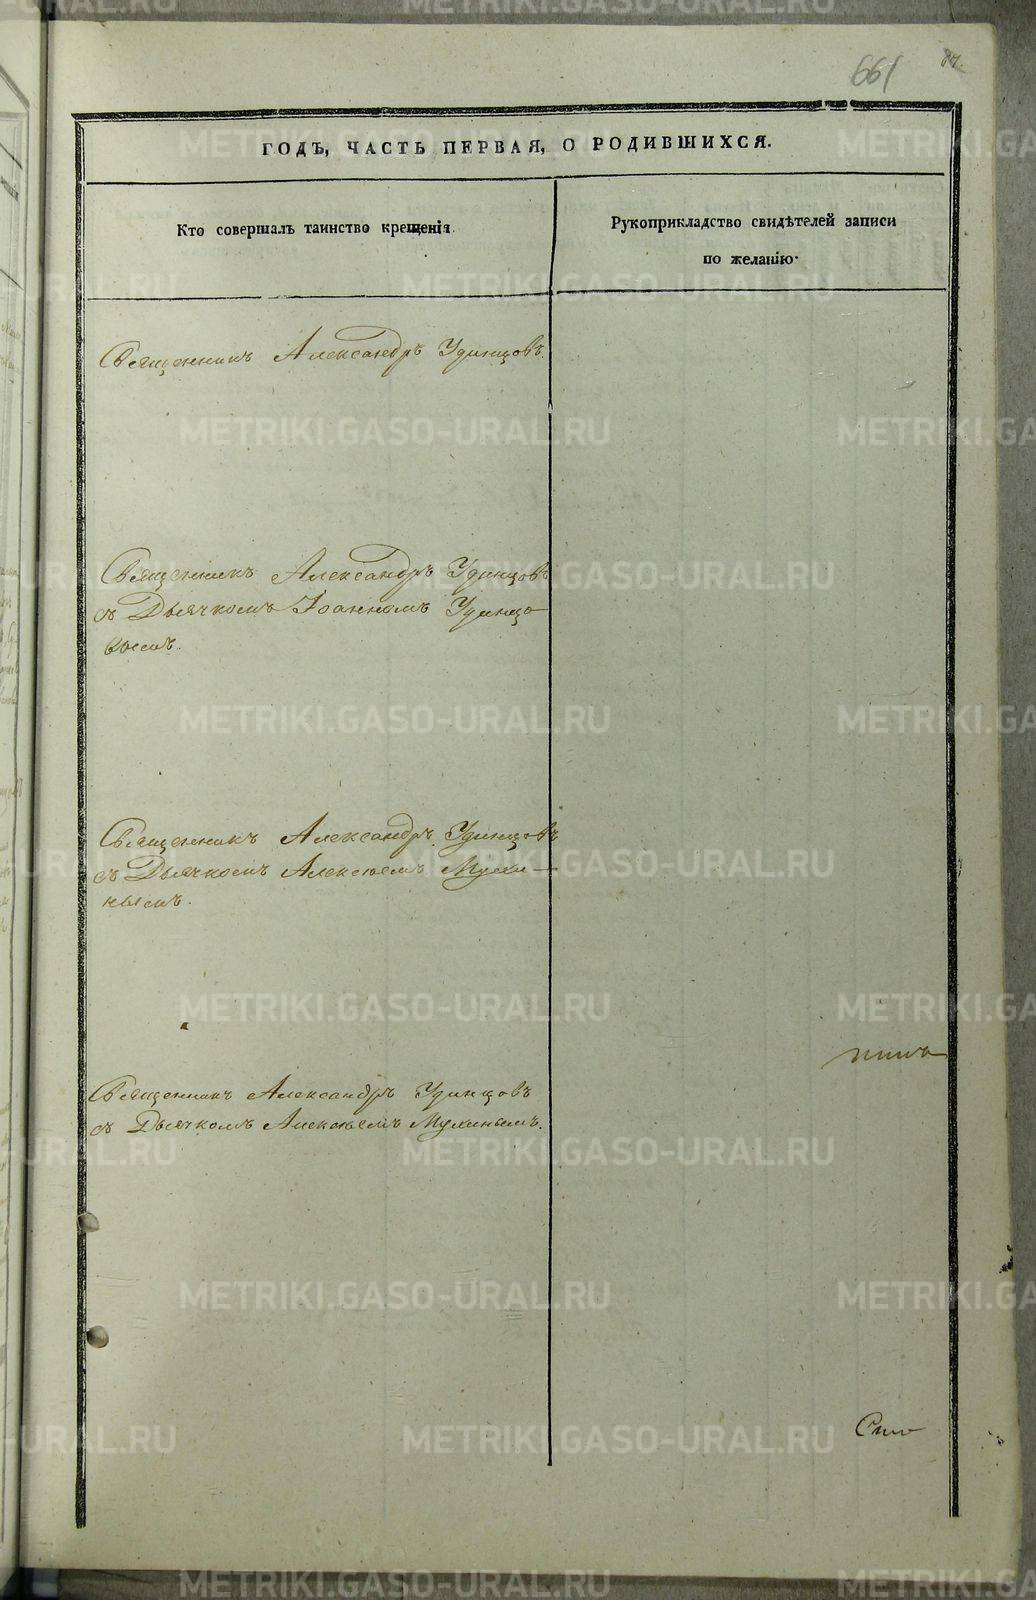 661
87.
ГОДЪ, ЧАСТЬ ПЕРВАЯ, О РОДИВШИХСЯ.
Кто совершалъ таинство крещенія.
Рукоприкладство свидѣтелей записи
по желанію·
Священникъ Александръ Удинцовъ.
Священникъ Александръ Удинцовъ
съ Дьячкомъ Іоанномъ Удинцо
вымъ.
Священникъ Александръ Удинцовъ
съ Дьячкомъ Алексѣемъ Мухи-
нымъ.
Священникъ Александръ Удинцовъ
съ Дьячкомъ Алексѣемъ Мухинымъ.
METRIKI.GASO-URAL.RU